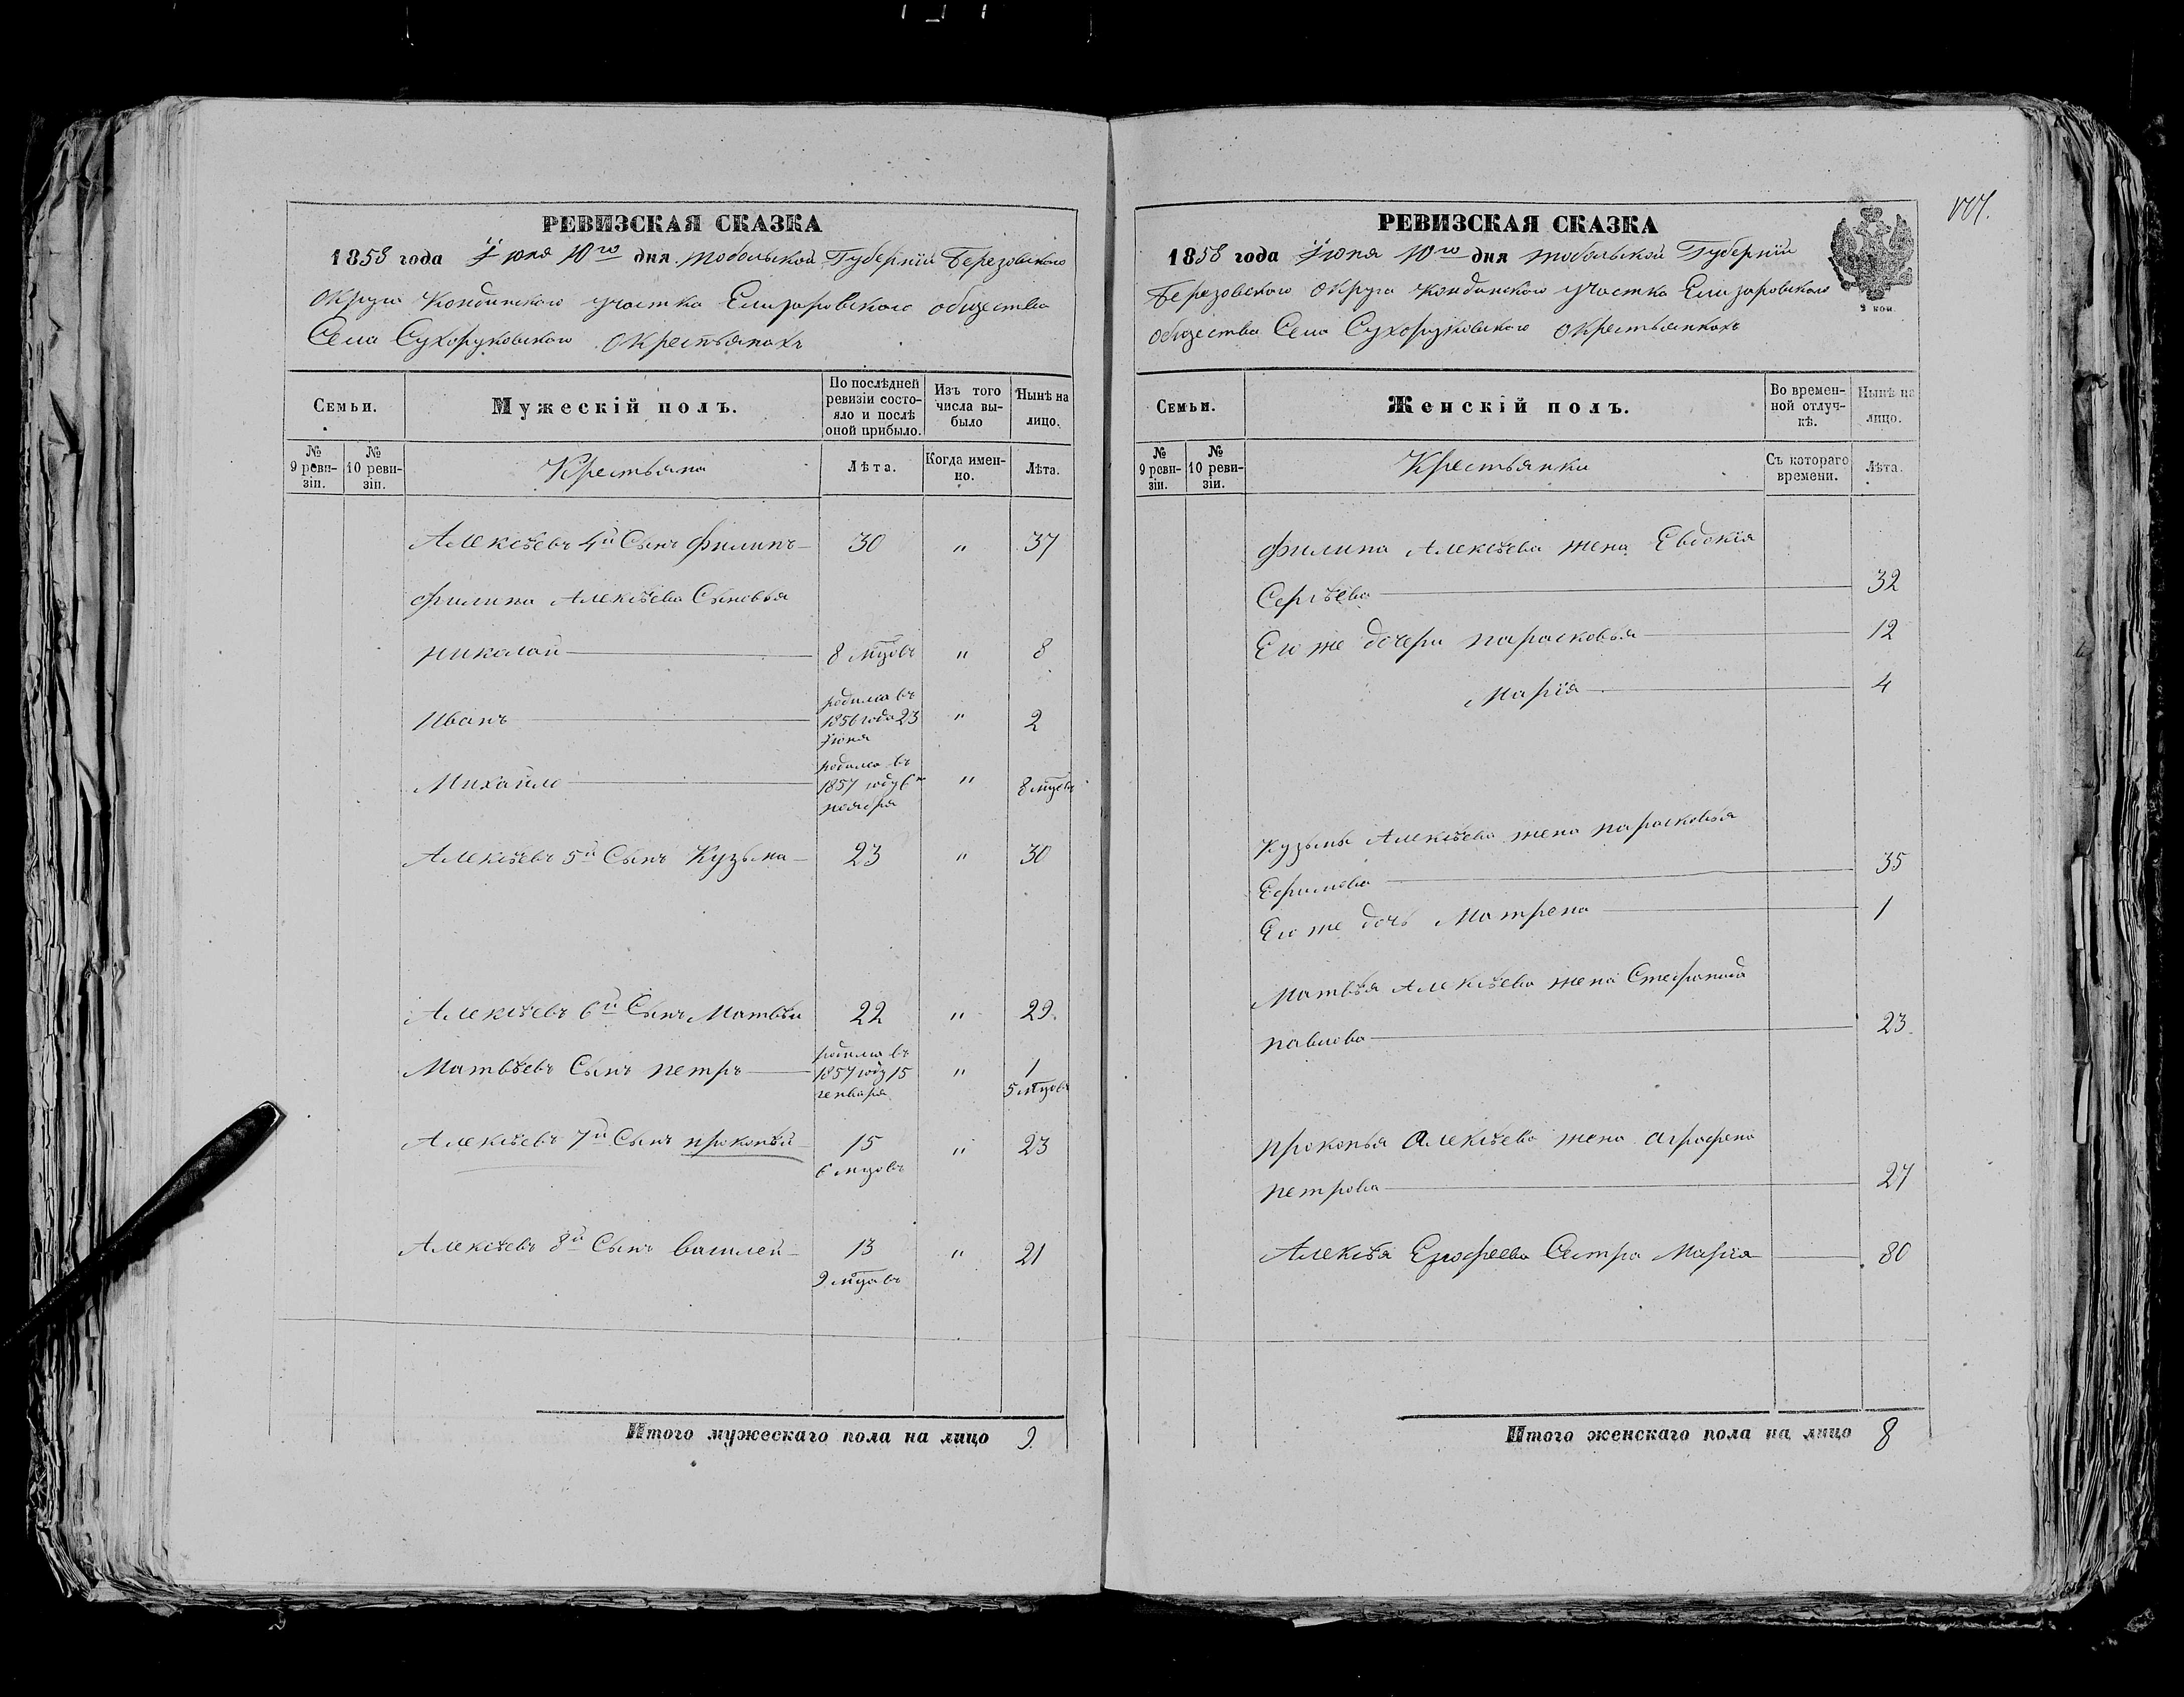 РЕВИЗСКАЯ СКАЗКА
1858 года Іюня 10го дня Тобольской Губерніи Березовского
округа Кондинского участка Елизаровского общества
Села Сухоруковского о крестьянахъ
Семьи.
Мужескій полъ.
По послѣдней
ревизіи состо-
яло и послѣ
оной прибыло.
Изъ того
числа вы-
было
Нынѣ на
лицо.
№
9 реви-
зіи.
№
10 реви-
зіи.
Крестьяна
Лѣта.
Когда имен-
но.
Лѣта.
Алексѣевъ 4й Сынъ Филипъ 30 " 37
Филипа Алексѣева Сыновья
Николай 8 мцовъ " 8
Иванъ родился въ 1856 года 23 Іюня " 2
Михайло родился въ 1857 году 6го ноября " 8 мцовъ
Алексѣевъ 5й Сынъ Кузьма 23 " 30
Алексѣевъ 6й Сынъ Матвѣй 22 " 29.
Матвѣевъ Сынъ Петръ родился въ 1857 году 15 генваря " 1 5 мцовъ
Алексѣевъ 7й Сынъ Прокопѣй 15 6 мцовъ " 23
Алексѣевъ 8й Сынъ Василей 13 9 мцовъ " 21
Итого мужескаго пола на лицо 9.
РЕВИЗСКАЯ СКАЗКА
1858 года Іюня 10го дня Тобольской Губерніи
Березовского округа Кондинского участка Елизаровского
общества Села Сухоруковского о крестьянкахъ
2 коп.
Семьи.
Женскій полъ.
Во времен-
ной отлуч-
кѣ.
Нынѣ на
лицо.
№
9 реви-
зіи.
№
10 реви-
зіи.
Крестьянки
Съ котораго
времени.
Лѣта.
Филипа Алексѣева жена Евдокія
Сергѣева 32
Его же дочери Парасковья 12
Марія 4
Кузьмы Алексѣева жена Парасковья
Ефимова 35
Его же дочь Матрена 1
Матвѣя Алексѣева жена Стефанида
Павлова 23.
Прокопья Алексѣева жена Аграфена
Петрова 27
Алексѣя Ерофеева Сестра Марія 80
Итого женскаго пола на лицо 8